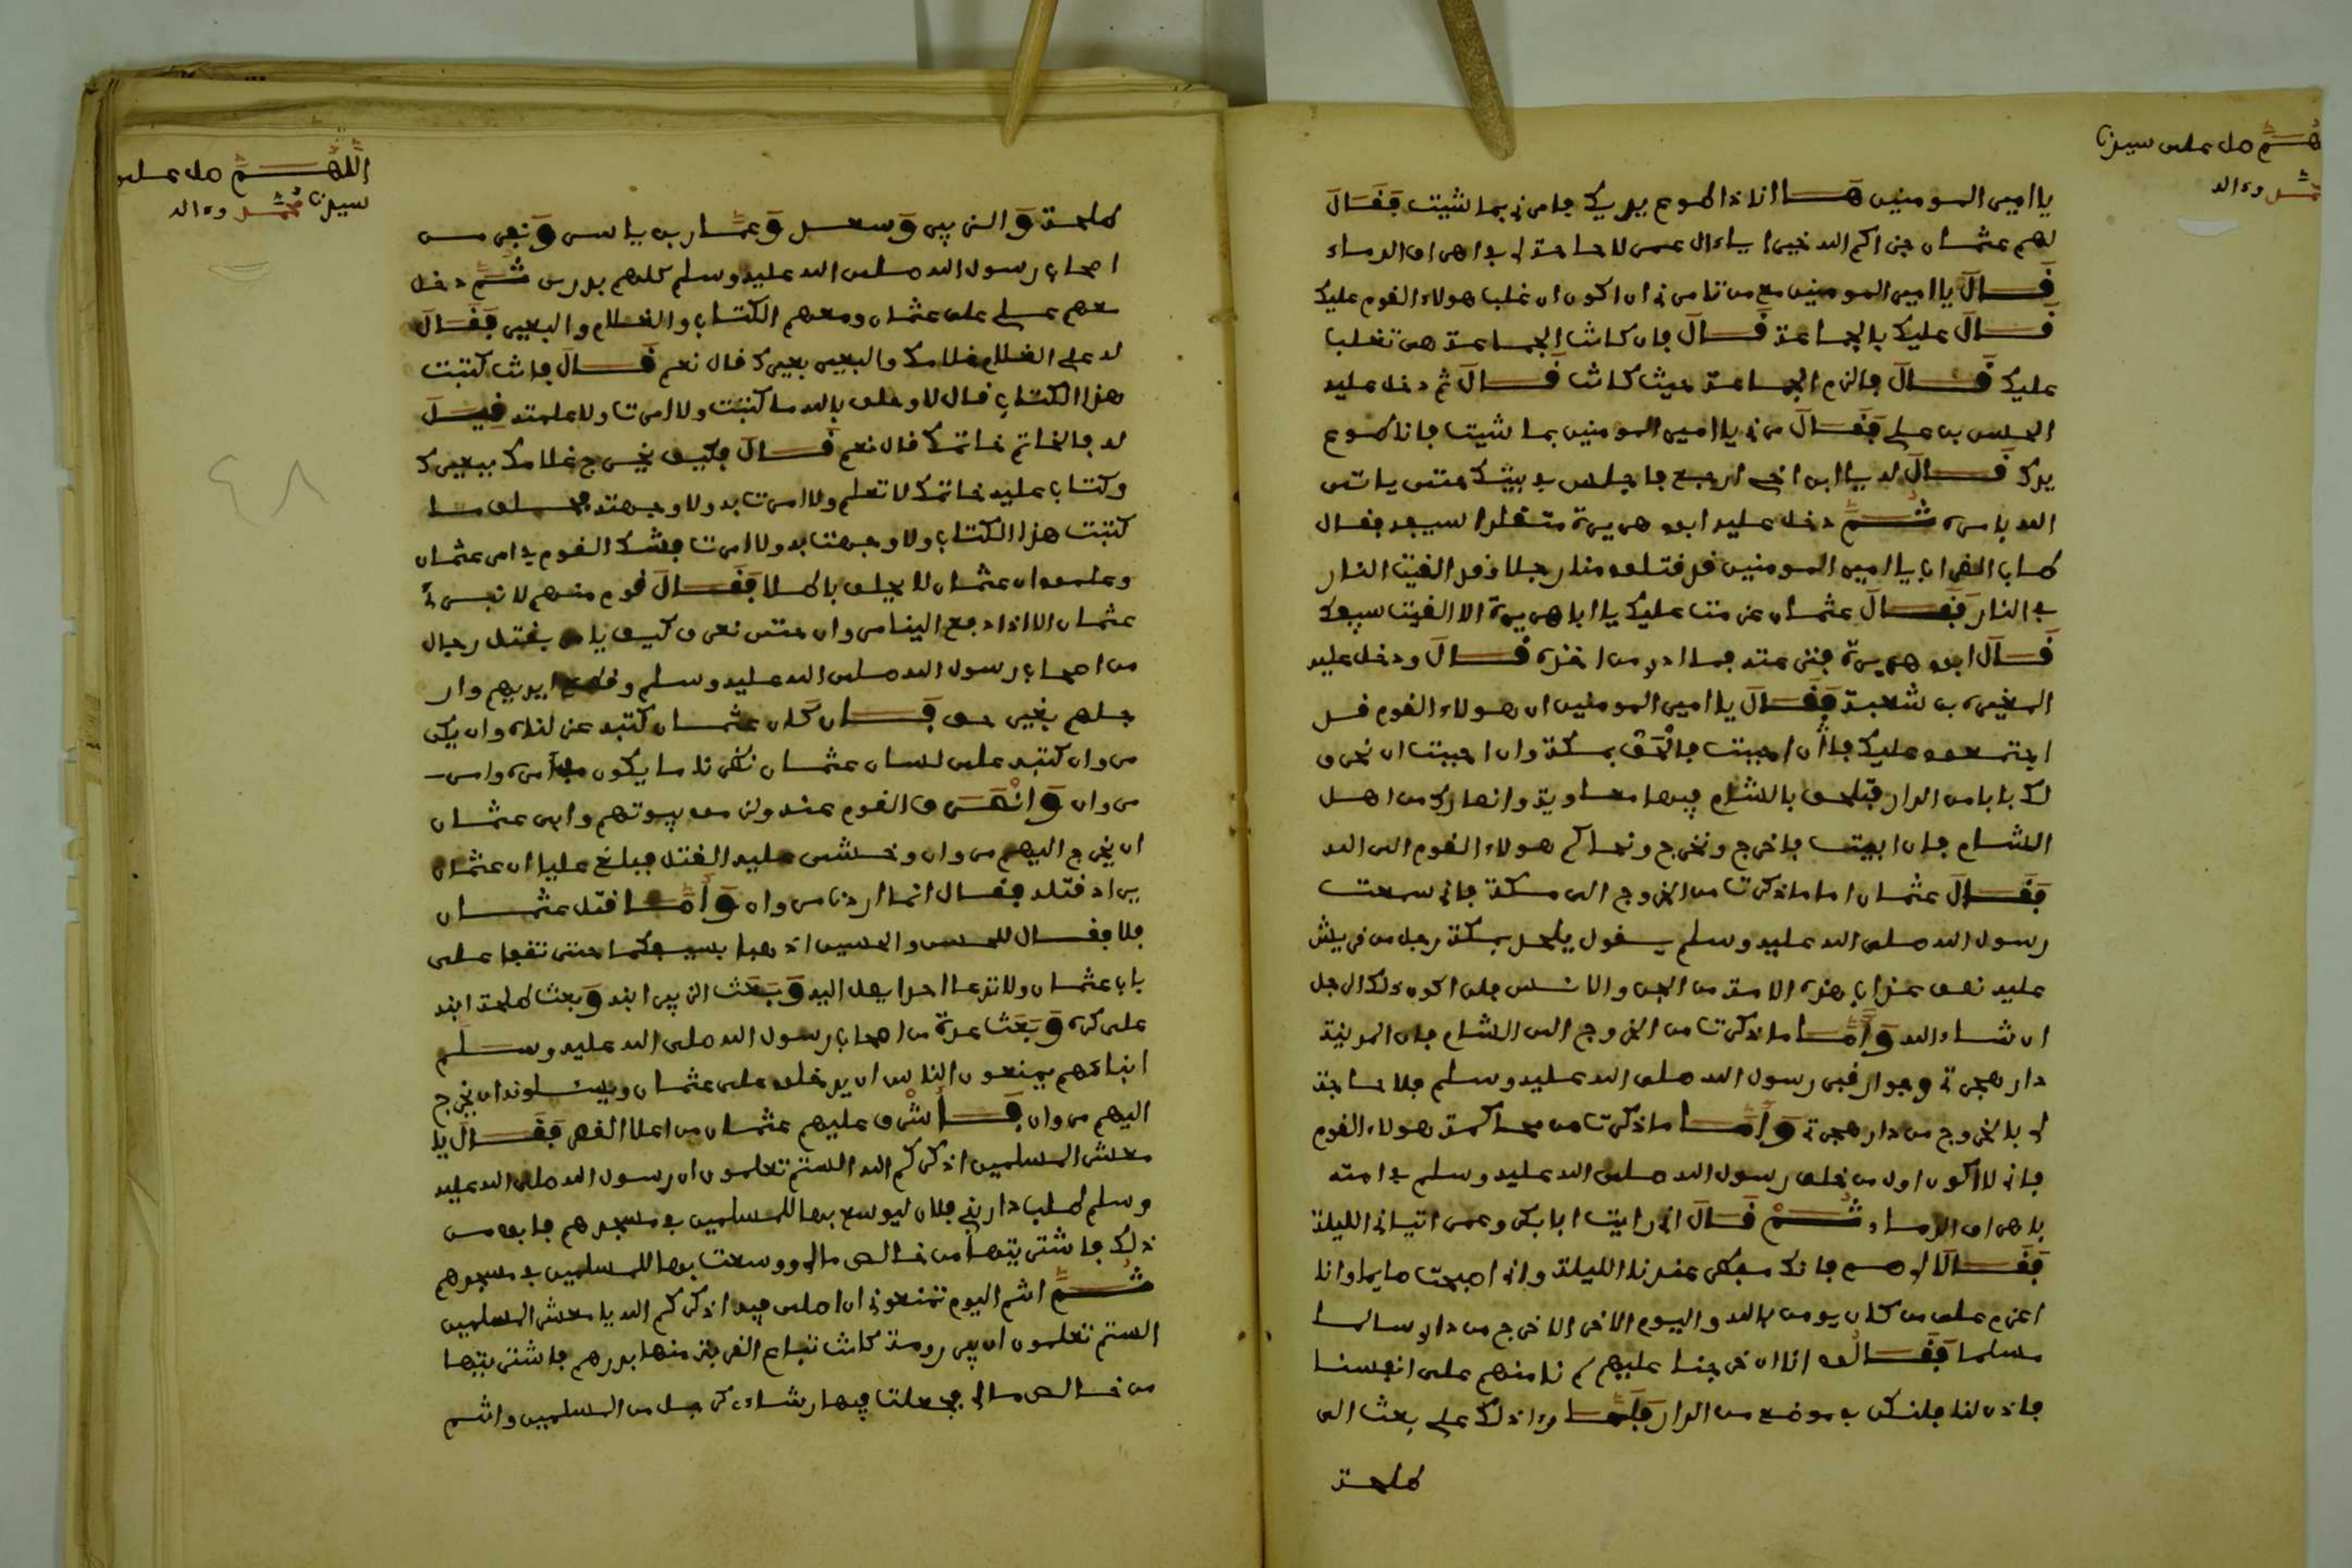 هم صل على سيدنا
محمد وءاله
يا امير المومنين هـا انا ذا طوع يديك فامرني بما شيت فقال
لهم عثمان جزاكم الله خيرا يا ءال عمر لا حاجة لي في اهراق الدماء
قال يا امير المومنين مع من تامرني ان اكون ان غلب هولاء القوم عليك
قال عليك بالجماعة قال فان كانت الجماعة هي تغلب
عليك قال فالزم الجماعة حيث كانت قال ثم دخل عليه
الحسن بن علي فقال مرني يا امير المومنين بما شيت فانا طوع
يدك قال له يا ابن اخي ارجع فاجلس في بيتك حتى ياتي
الله بامره ثم دخل عليه ابو هريرة متقلدا سيفه فقال
طاب الضراب يا امير المومنين قد قتلوا منا رجلا وقد القيت النار
في النار فقال عثمان عزمت عليك يا ابا هريرة الا القيت سيفك
قال ابو هريرة فنزعته فما ادري من اخذه قال ودخل عليه
المغيرة بن شعبة فقال يا امير المومنين ان هولاء القوم قد
اجتمعوا عليك فان احببت فالحق بمكة وان احببت ان نخرق
لك بابا من الدار فتلحق بالشام فيها معاوية وانصارك من اهل
الشام فان ابيت فاخرج ونخرج ونحاكم هولاء القوم الى الله
فقال عثمان اما ما ذكرت من الخروج الى مكة فاني سمعت
رسول الله صلى الله عليه وسلم يقول يلحد بمكة رجل من قريش
عليه نصف عذاب هذه الامة من الجن والانس فلن اكون ذلك الرجل
ان شاء الله وأما ما ذكرت من الخروج الى الشام فان المدينة
دار هجرتي وجوار قبر رسول الله صلى الله عليه وسلم فلا حاجة
لي بالخروج من دار هجرتي وأما ما ذكرت من محاكمة هولاء القوم
فاني لا اكون اول من خلف رسول الله صلى الله عليه وسلم في امته
باهراق الدماء ثم قال اني رايت ابا بكر وعمر اتياني الليلة
فقالا لي صم فانك مفطر عندنا الليلة واني اصبحت صايما وانا
اعزم على من كان يومن بالله واليوم الاخر الا خرج من داري سالما
مسلما فقالوا انا ان خرجنا عليهم لم نامنهم على انفسنا
فاذن لنا فلنكن في موضع من الدار فلما رءا ذلك علي بعث الى
طلحة
اللهم صل على
سيدنا محمد وءاله
طلحة والزبير وسعد وعمار بن ياسر ونفر من
اصحاب رسول الله صلى الله عليه وسلم كلهم بدري ثم دخل
معهم علي على عثمان ومعهم الكتاب والغلام والبعير فقال
له علي الغلام غلامك والبعير بعيرك قال نعم قال فانت كتبت
هذا الكتاب قال لا وحلف بالله ما كتبت ولا امرت ولا علمته فيل
له فالخاتم خاتمك قال نعم قال فكيف يخرج غلامك ببعيرك
وكتاب عليه خاتمك لا تعلم ولا امرت به ولا وجهته فحلف ما
كتبت هذا الكتاب ولا وجهت به ولا امرت فشك القوم في امر عثمان
وعلموا ان عثمان لا يحلف باطلا فقال قوم منهم لا نبرئ
عثمان الا اذا دفع الينا مروان حتى نعرف كيف يامر بقتل رجال
من اصحاب رسول الله صلى الله عليه وسلم وقطع ايديهم وار
جلهم بغير حق فان كان عثمان كتبه عزلناه وان يكن
مروان كتبه على لسان عثمان نظرنا ما يكون في امره وامر
مروان وانصرف القوم عنه ولزموا بيوتهم وابى عثمان
ان يخرج اليهم مروان وخشي عليه القتل فبلغ عليا ان عثمان
يراد قتله فقال انما اردنا مروان وأما قتل عثمان
فلا فقال للحسن والحسين اذهبا بسيفكما حتى تقفا على
باب عثمان ولا تدعا احدا يصل اليه وبعث الزبير ابنه وبعث طلحة ابنه
على كره وبعث عدة من اصحاب رسول الله صلى الله عليه وسلم
ابناءهم يمنعون الناس ان يدخلوا على عثمان ويسئلونه ان يخرج
اليهم مروان فأشرف عليهم عثمان من اعلا القصر فقال يا
معشر المسلمين اذكركم الله الستم تعلمون ان رسول الله صلى الله عليه
وسلم طلب دار بني فلان ليوسع بها للمسلمين في مسجدهم فابوا من
ذلك فاشتريتها من خالص مالي ووسعت بها للمسلمين في مسجدهم
ثم انتم اليوم تمنعوني ان اصلي فيه اذكركم الله يا معشر المسلمين
الستم تعلمون ان بير رومة كانت تباع القربة منها بدرهم فاشتريتها
من خالص مالي فجعلت فيها رشاءي كرجل من المسلمين وانتم